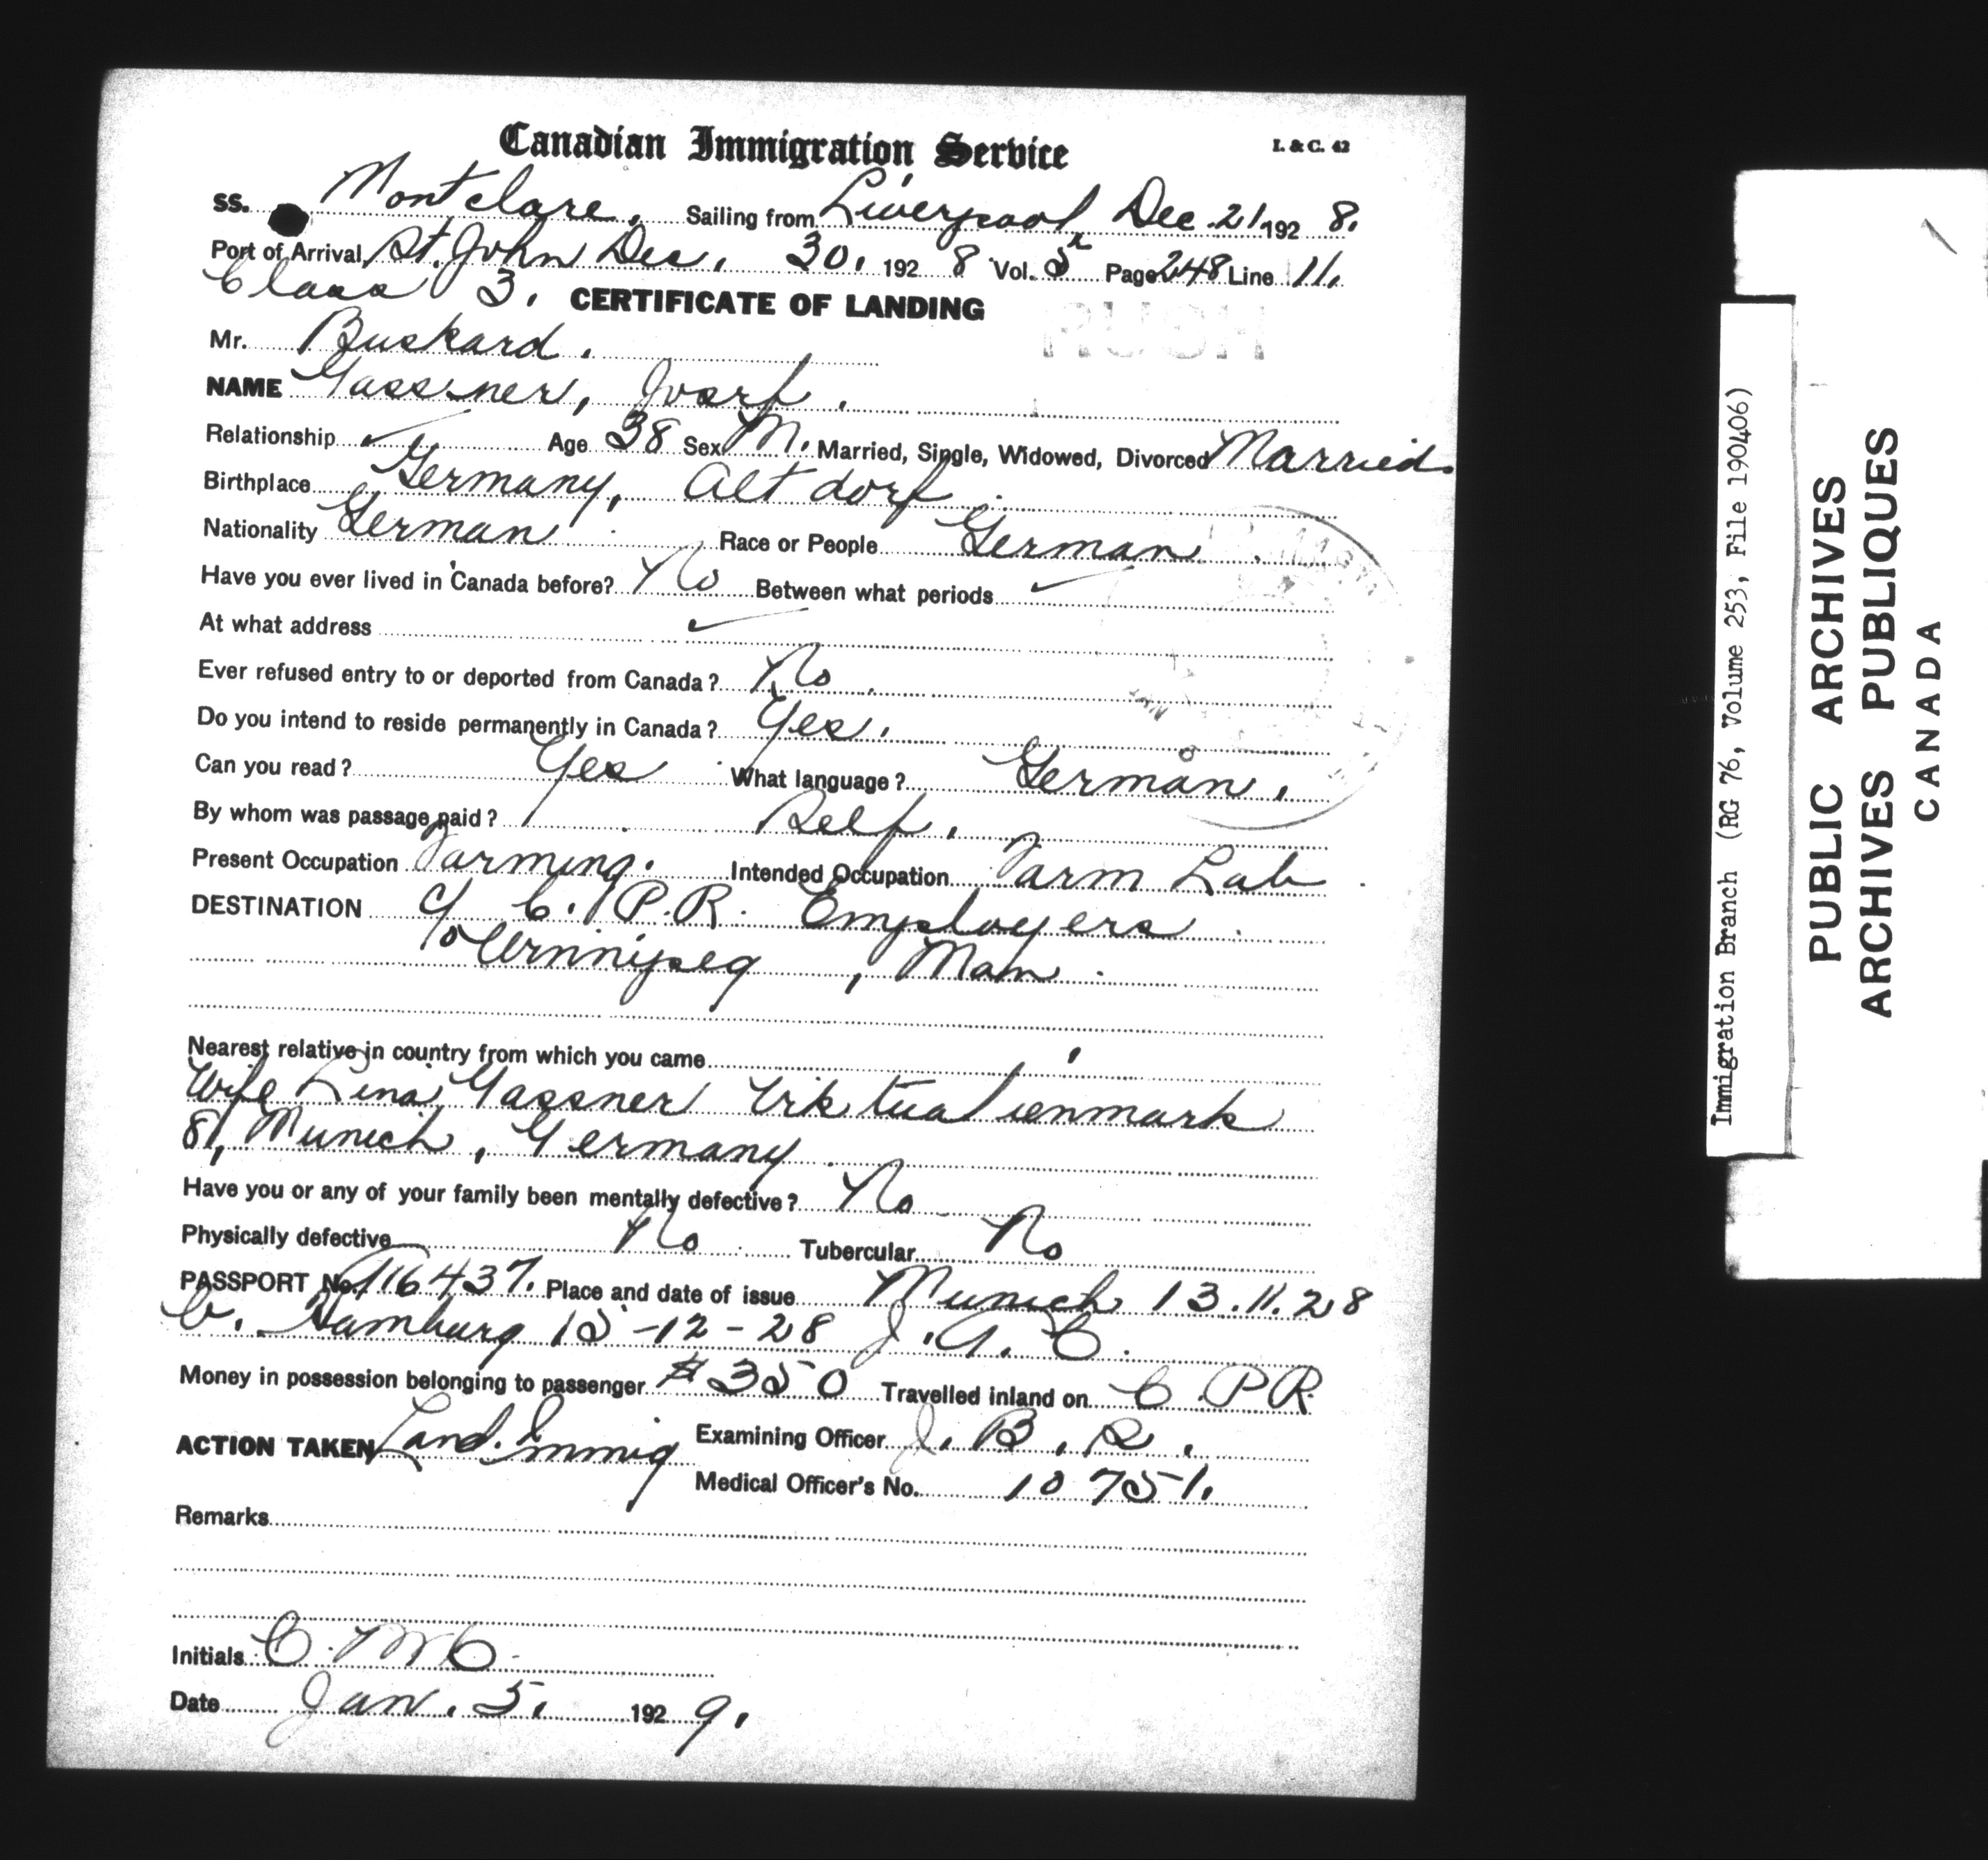 Canadian Immigration Service
I. & C. 42
SS. Montclare. Sailing from Liverpool Dec. 21 192 8.
Port of Arrival St. John Dec. 30. 192 8 Vol. 5 Page 248 Line 11.
Class 3. CERTIFICATE OF LANDING
RUSH
Mr. Buskard.
NAME Gassner, Josef.
Relationship Age 38 Sex M. Married, Single, Widowed, Divorced Married.
Birthplace Germany, Altdorf.
Nationality German Race or People German
Have you ever lived in Canada before? No Between what periods
At what address
Ever refused entry to or deported from Canada? No
Do you intend to reside permanently in Canada? Yes.
Can you read? Yes What language? German.
By whom was passage paid? Self.
Present Occupation Farming. Intended Occupation Farm Lab
DESTINATION c/o C.P.R. Employers
Winnipeg, Man.
Nearest relative in country from which you came
Wife Lina Gassner Viktualienmark
8, Munich, Germany
Have you or any of your family been mentally defective? No
Physically defective No Tubercular No
PASSPORT No. 116437. Place and date of issue Munich 13.11.28
C. Hamburg 15-12-28 J.A.C.
Money in possession belonging to passenger $350 Travelled inland on C.P.R.
ACTION TAKEN Land. Immig Examining Officer J.B.R.
Medical Officer's No. 10751.
Remarks
Initials C.M.C.
Date Jan. 5. 192 9.
Immigration Branch (RG 76, Volume 253, File 190406)
PUBLIC ARCHIVES
ARCHIVES PUBLIQUES
CANADA